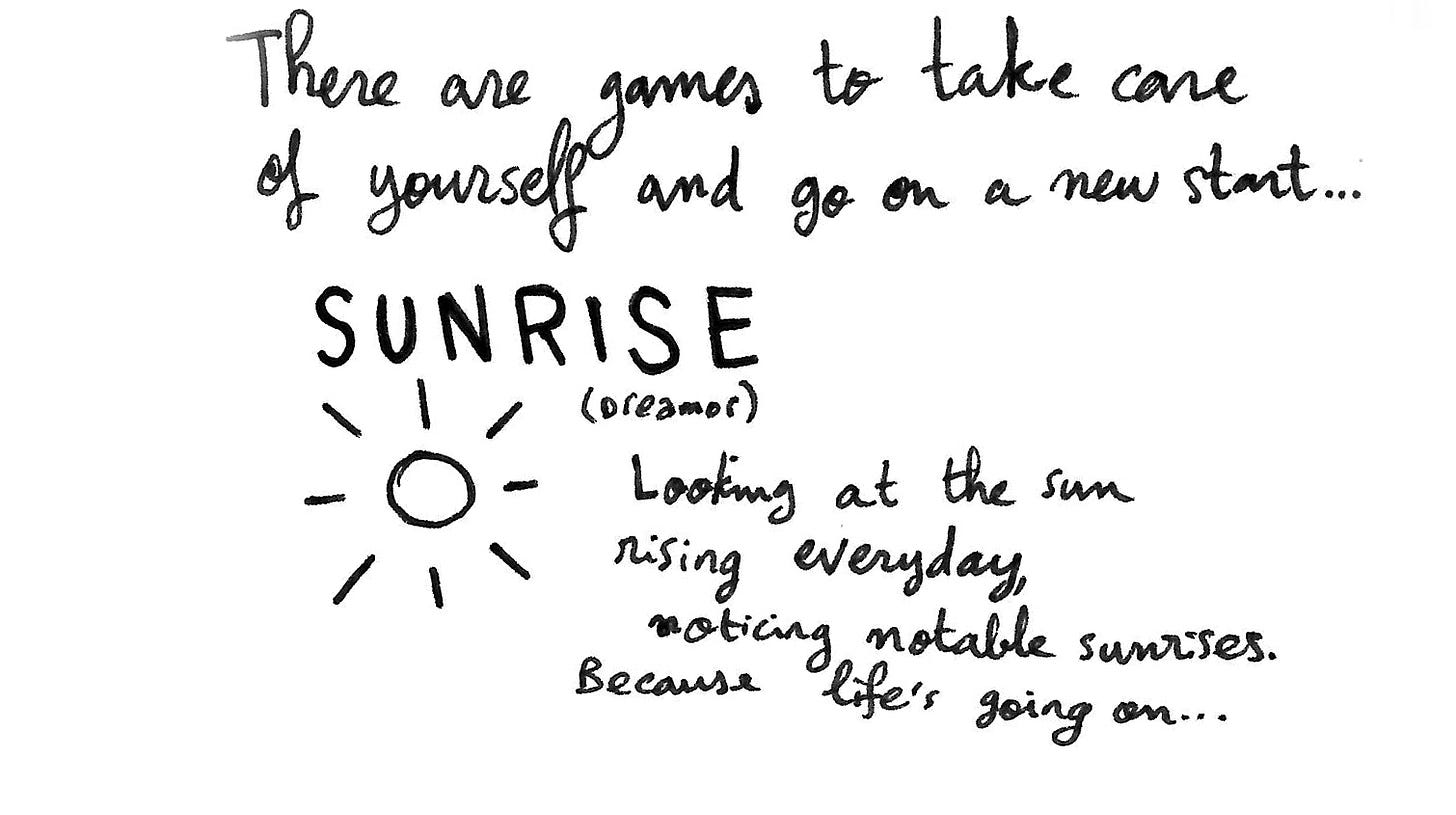 There are games to take care
of yourself and go on a new start...
SUNRISE
(Dreamor)
Looking at the sun
rising everyday,
noticing notable sunrises.
Because life's going on...